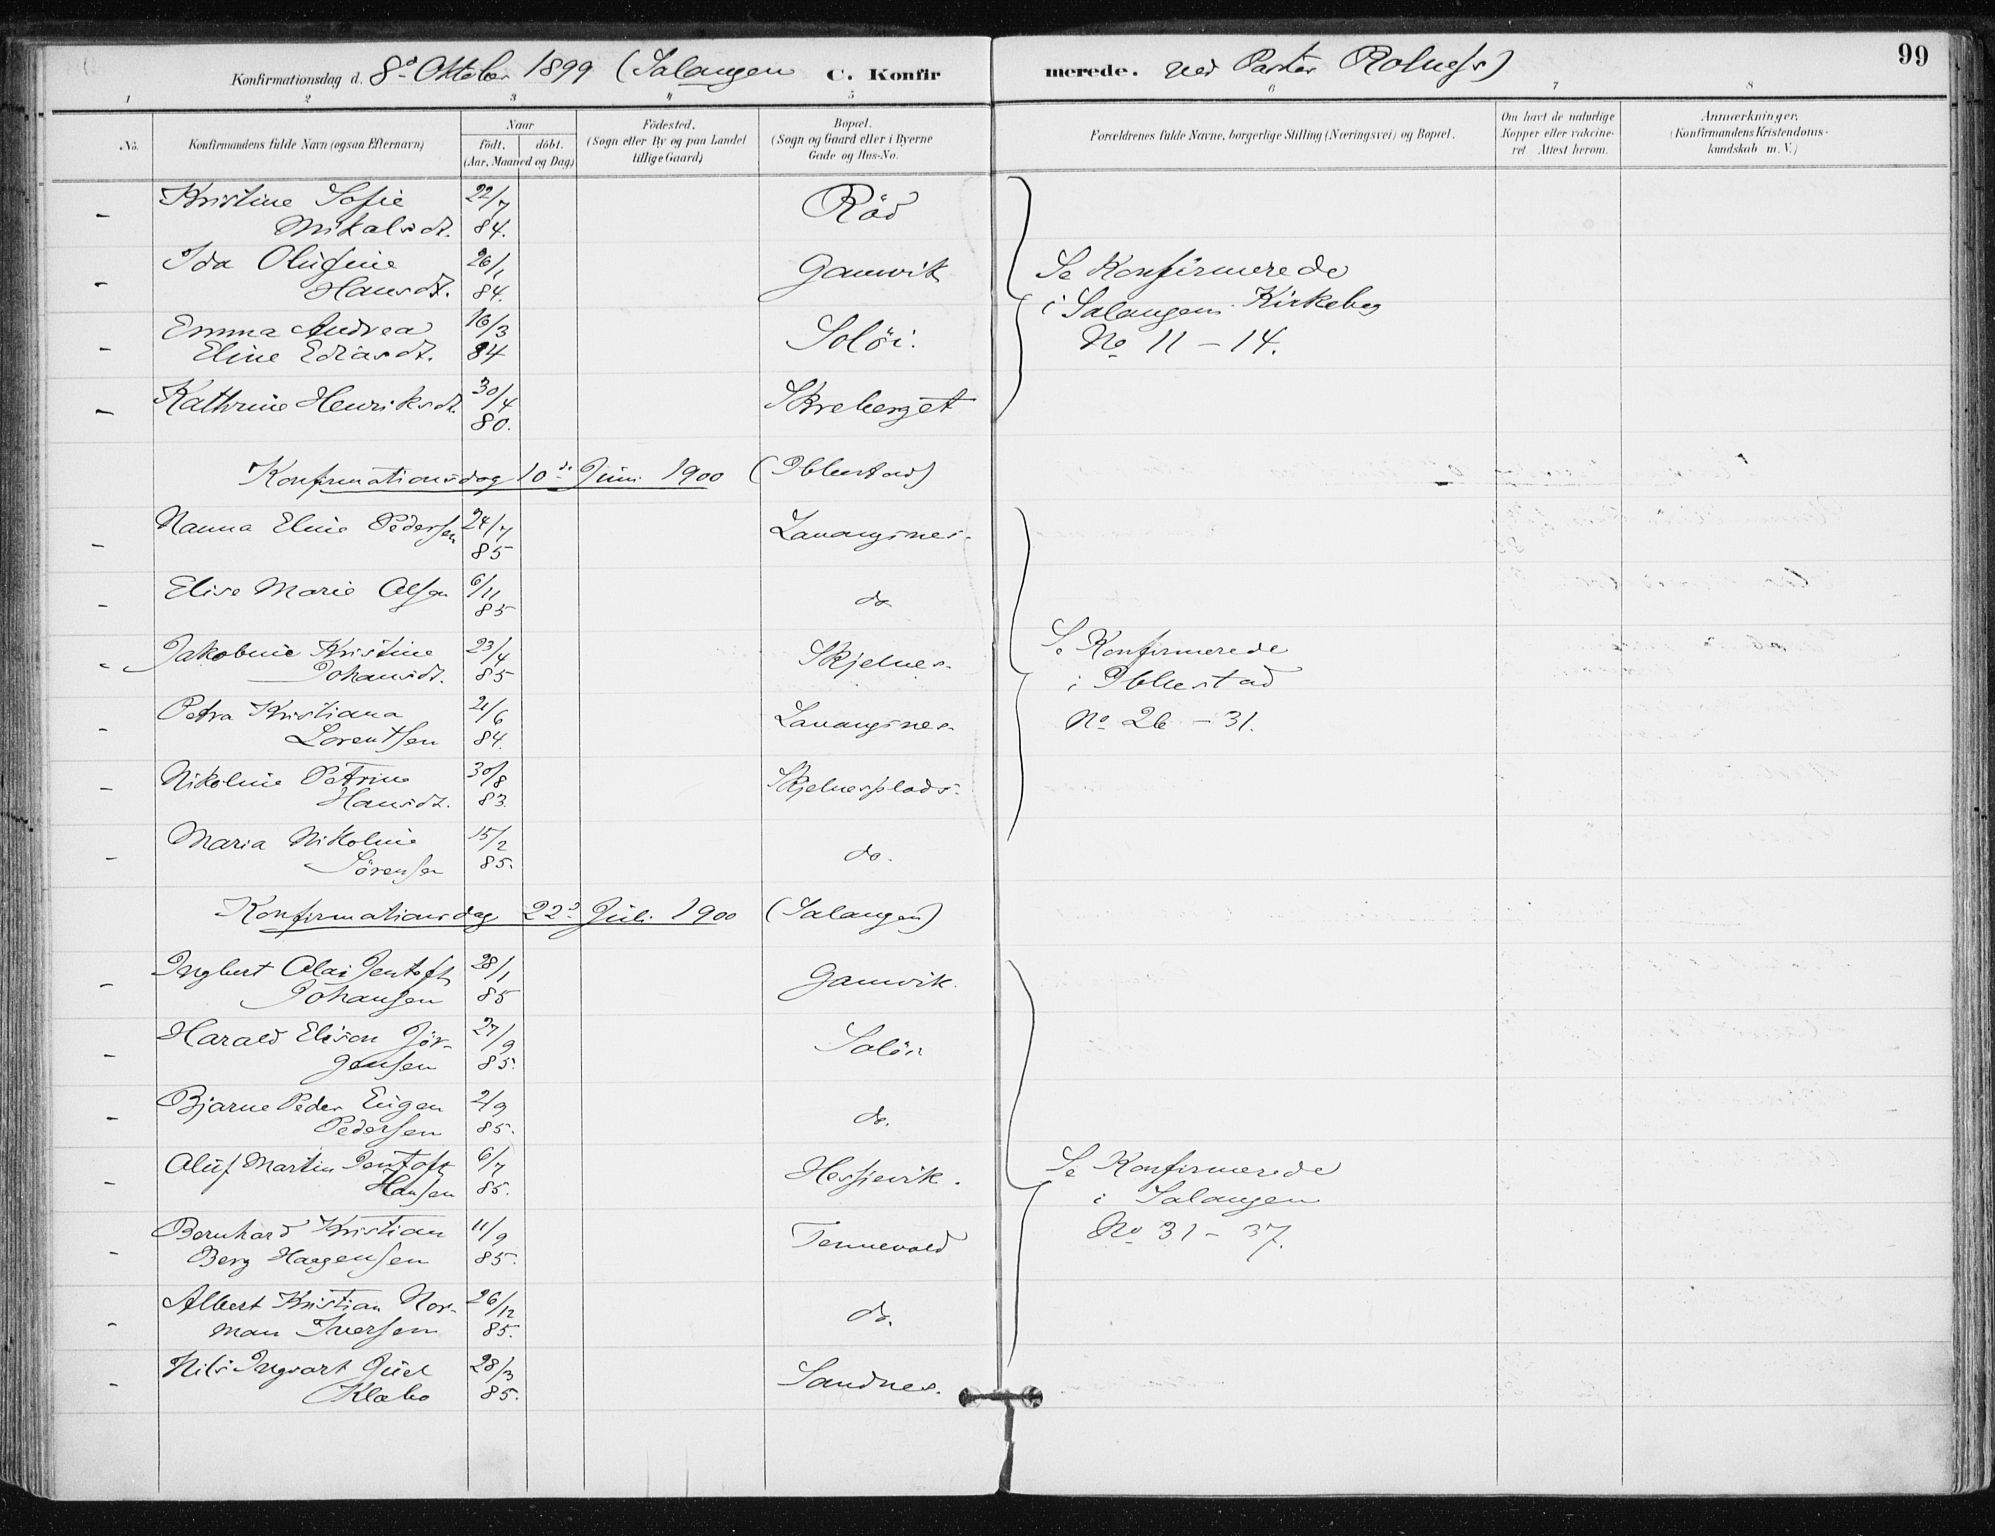 99
Konfirmationsdag d. 8de Oktober 1899 (Salangen C. Konfirmerede. ved Pastor Rolness)
1 2 3 4 5 6 7 8
No. Konfirmandens fulde Navn (ogsaa Efternavn) Naar født. døbt. (Aar, Maaned og Dag) Fødested. (Sogn eller By og paa Landet tillige Gaard) Bopæl. (Sogn og Gaard eller i Byerne Gade og Hus-No. Forældrenes fulde Navne, borgerlige Stilling (Næringsvei) og Bopæl. Om havt de naturlige Kopper eller vaccineret. Attest herom. Anmærkninger. (Konfirmandens Kristendomskundskab m. V.)
- Kristine Sofie 22/7 Röd
Mikalsdt. 84.
- Ida Olufine 26/1 Gamvik
Hansdt. 84.
Se Konfirmerede
i Salangens Kirkebog
No 11 - 14.
- Emma Andrea 16/3 Solöi.
Eline Ediasdt. 84
- Kathrine Henriksdt. 30/4 Skreberget
80.
Konfirmationsdag 10de Juni 1900 (Ibbestad)
- Nanna Eline Pedersen 24/7 Lavangsnes.
85
- Elise Marie Olsen 6/11 do
85
- Jakobine Kristine 23/4 Skjelnes.
Johansdt. 85
Se Konfirmerede
i Ibbestad
No 26 - 31.
- Petra Kristiana 21/6 Lavangsnes.
Lorentsen 84.
- Nikoline Petrine 30/8 Skjelnesplads.
Hansdt. 83.
- Maria Nikoline 15/2 do.
Sørensen 85.
Konfirmationsdag 22d Juli 1900 (Salangen)
- Ingbert Olai Jentoft 28/1 Gamvik.
Johansen 85
- Harald Elison Jør- 27/9 Solöi
gensen 85.
- Bjarne Peder Eugen 2/9 do.
Pedersen 85.
- Oluf Martin Jentoft 6/7 Hessjevik.
Hansen 85.
Se Konfirmerede
i Salangen
No 31 - 37.
- Bernhard Kristian 11/9 Tennevold
Berg Haagensen 85.
- Albert Kristian Nor- 26/12 do.
man Iversen 85.
- Nils Ingvart Juel 28/3 Sandnes.
Klæbo 85.